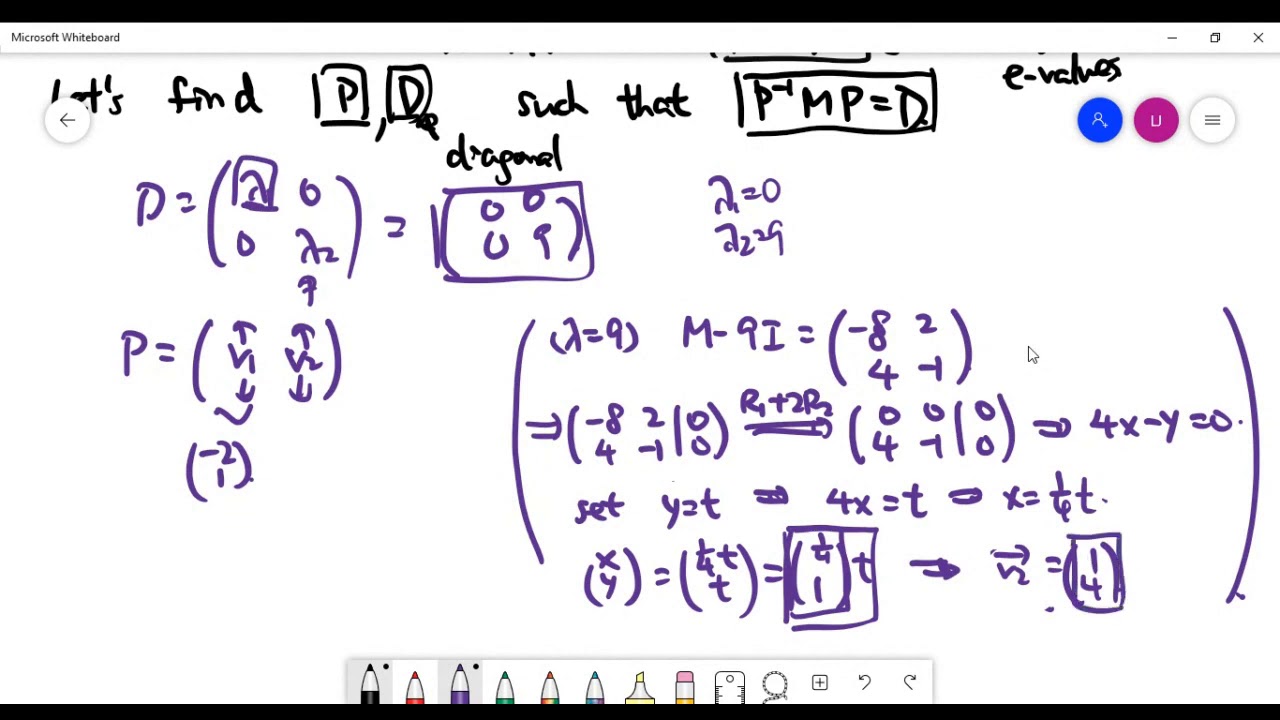 Microsoft Whiteboard
e-values
Let's find P, D such that P⁻¹MP=D.
diagonal
D = (λ 0; 0 λ₂) = (0 0; 0 9)
λ₁=0
λ₂=9
P = (v₁ v₂)
(-2; 1).
(λ=9) M-9I = (-8 2; 4 -1)
⇒ (-8 2 | 0; 4 -1 | 0) R₁+2R₂ ⇒ (0 0 | 0; 4 -1 | 0) ⇒ 4x-y=0.
set y=t ⇒ 4x=t ⇒ x=¼t.
(x; y) = (¼t; t) = (¼; 1)t ⇒ v₂ = (1; 4)
U